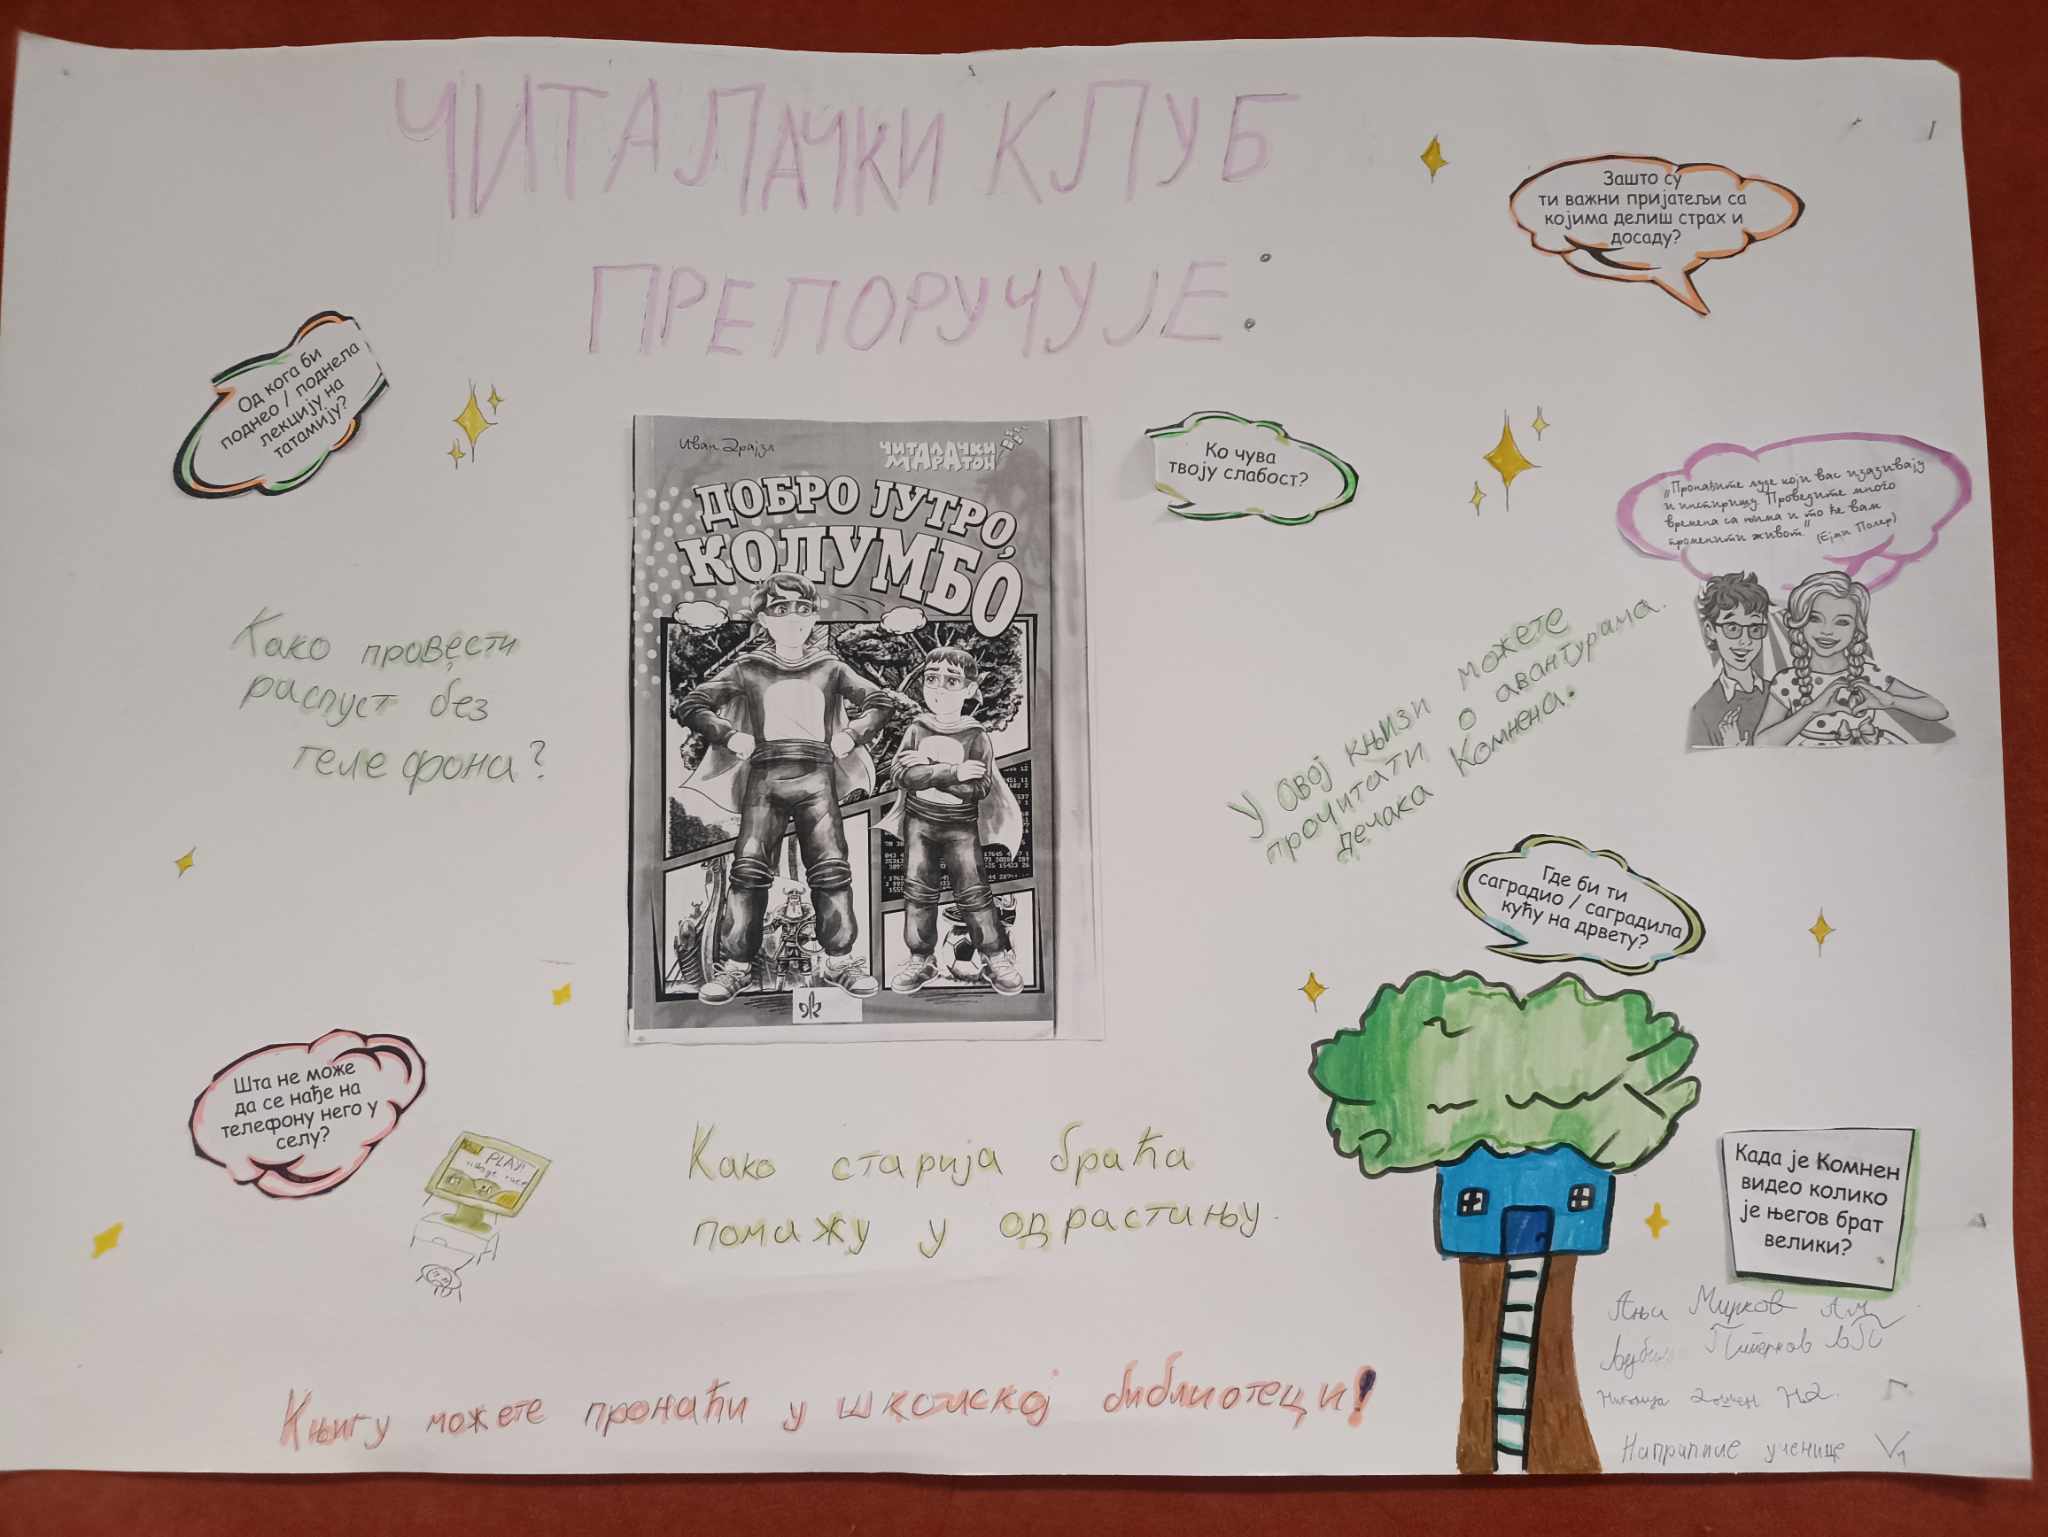 ЧИТАЛАЧКИ КЛУБ
ПРЕПОРУЧУЈЕ:
Зашто су
ти важни пријатељи са
којима делиш страх и
досаду?
Од кога би
поднео / поднела
лекцију на
татамију?
Иван Драјзл
ЧИТАЛАЧКИ
МАРАТОН
ДОБРО ЈУТРО,
КОЛУМБО
Ко чува
твоју слабост?
„Пронађите људе који вас изазивају
и инспиришу. Проведите много
времена са њима и то ће вам
променити живот.“
(Ејми Полер)
Како провести
распуст без
телефона?
У овој књизи можете
прочитати о авантурама
дечака Комнена.
Где би ти
саградио / саградила
кућу на дрвету?
Шта не може
да се нађе на
телефону него у
селу?
PLAY!
Како старија браћа
помажу у одрастању.
Када је Комнен
видео колико
је његов брат
велики?
Књигу можете пронаћи у школској библиотеци!
Ања Мирков АМ
Питерков
ученице V1